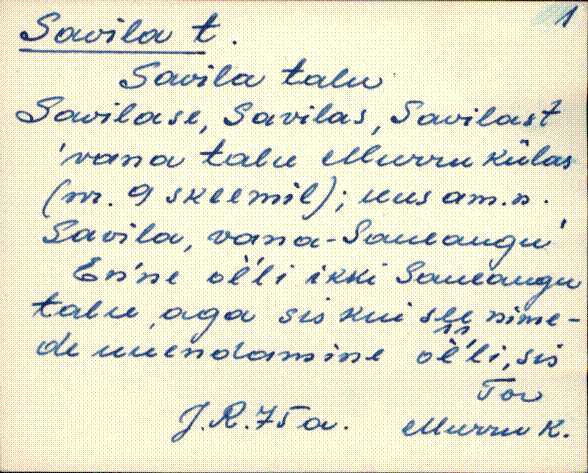 1
Savila t.
Savila talu
Savilase, Savilas, Savilast
'vana talu Murru külas
(nr. 9 skeemil); uus am.n.
Savila, vana-Saueaugu'
En'ne ol'li ikki Saueaugu
talu, aga sis kui see nime-
de uuendamine ol'li, sis
Tor
J.R. 75 a. Murru k.